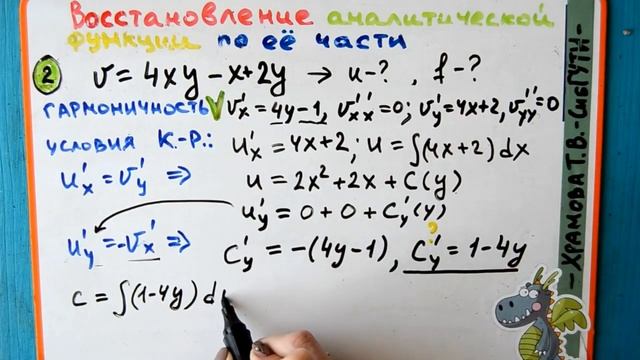 Восстановление аналитической
функции по её части
2 v = 4xy - x + 2y → u - ? , f - ?
ГАРМОНИЧНОСТЬ V v'x = 4y-1, v''xx = 0; v'y = 4x+2, v''yy = 0
условия К.-Р.: u'x = 4x+2; u = ∫(4x+2)dx
u'x = v'y ⇒ u = 2x² + 2x + C(y)
u'y = 0 + 0 + C'y(y)
u'y = -v'x ⇒ C'y = -(4y-1), C'y = 1-4y
?
C = ∫(1-4y)d
- ХРАМОВА Т.В. - СибГУТИ -